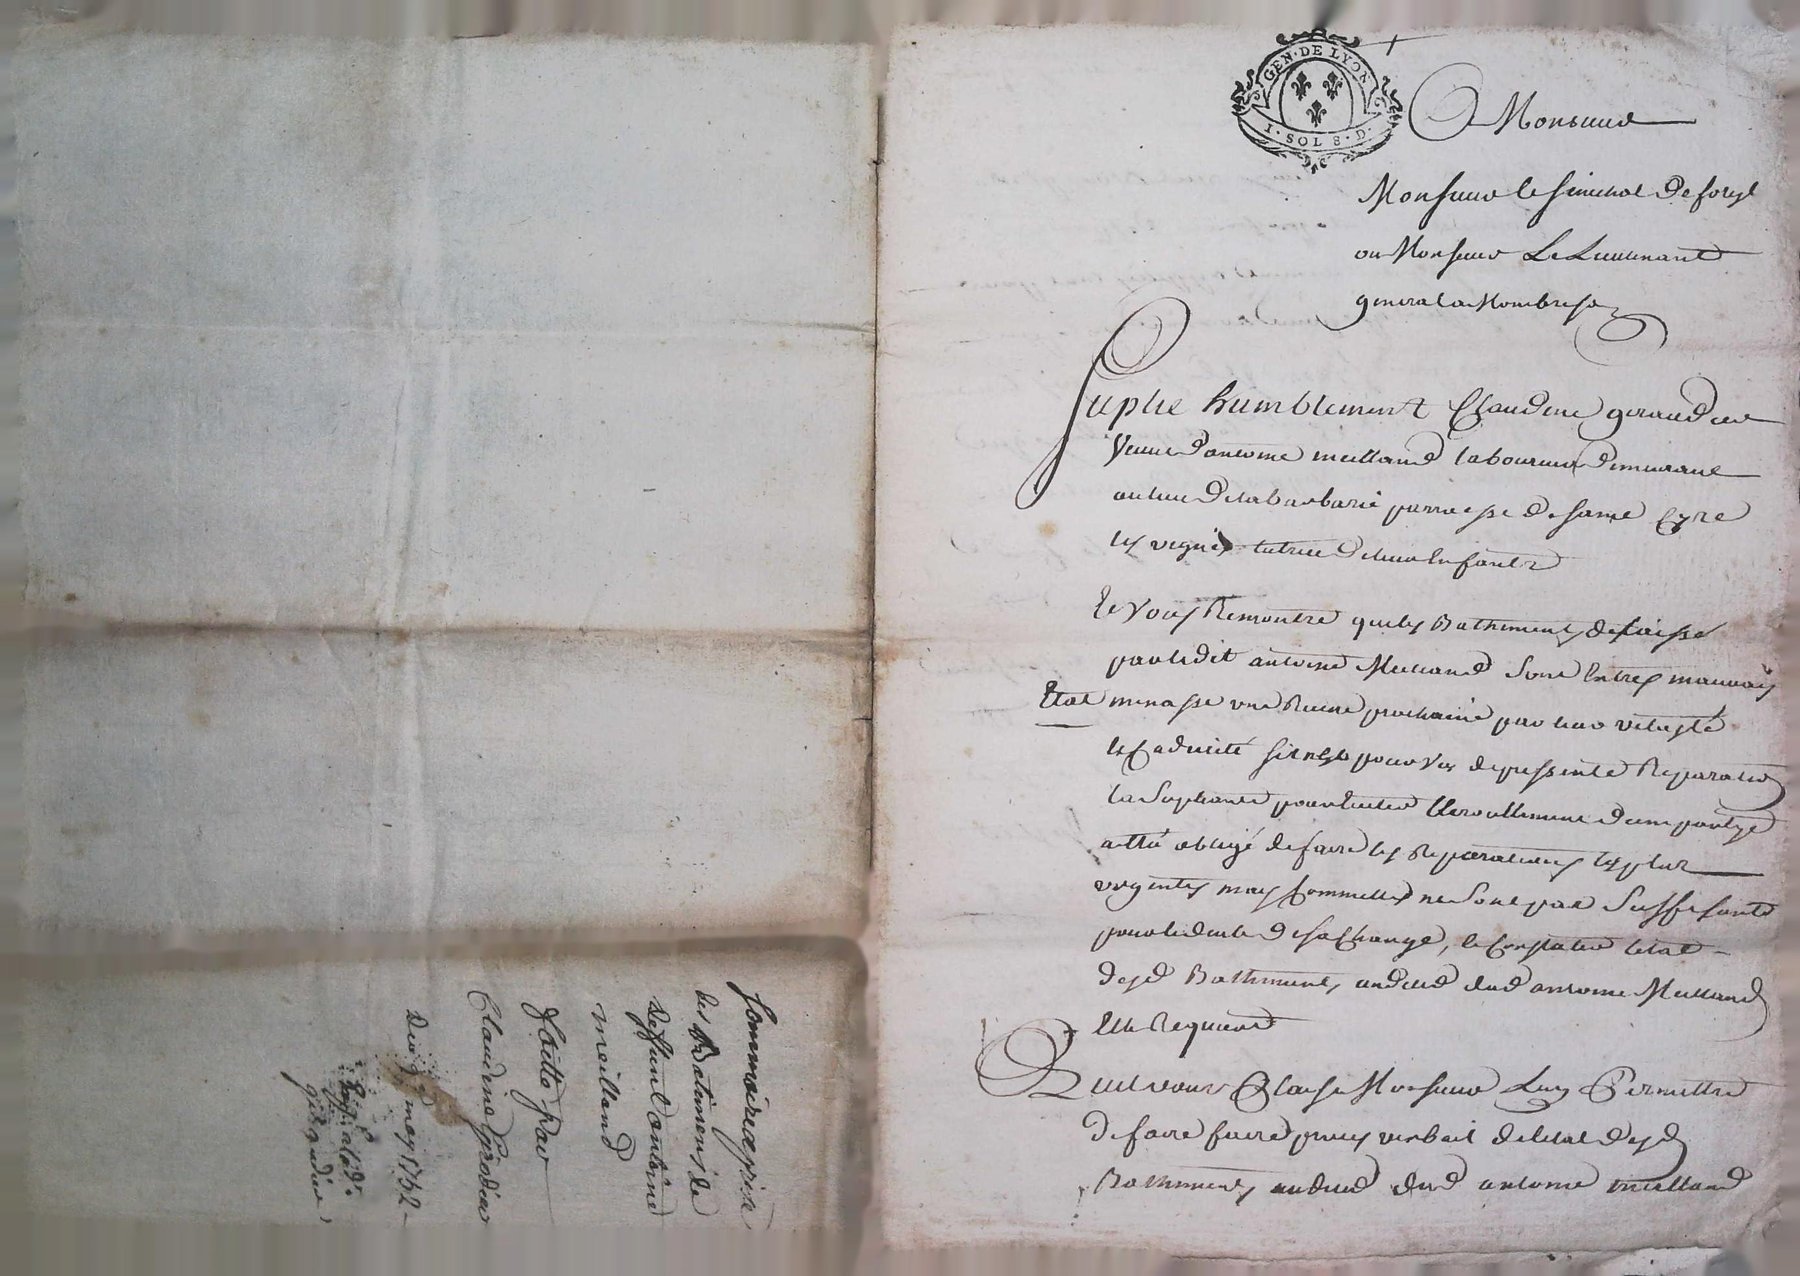 GEN · DE LYON
I · SOL 8 · D ·
A Monsieur
Monsieur le senechal de forest
ou Monsieur Le Lieutenant
general a Mombrison
Suplie humblement Claudine giraudier
Veuve d'antoine meilland laboureur demeurant
au lieu de la barbarie parroisse de saint Cyre
les vignes tutrice de leurs Enfants
Et Vous Remontre que les Bathiments delaissé
par ledit antoine Meilland sont En tres mauvais
Etat menasse une Ruine prochaine par leur vetusté
et Caducité sil n'est pourvus de pressente Reparation
la Supliante pour Eviter l'Ecroullement d'une partye
a etté obligé de faire les Reparations les plus
urgentes mais comme elles ne sont pas Suffisante
pour le deub de sa Charge, et Constater l'etat
desd Bathiments audud dud antoine Meilland
Elle Requiert
Qu'il vous Plaise Monsieur Luy Permettre
de faire faire procès verbail de l'etat desd
Bathiments audud dud antoine meilland
Sommaire aprise
des Batiments de
deffunt antoine
meilland
faitte par
Claudine Girodier
du may 1762